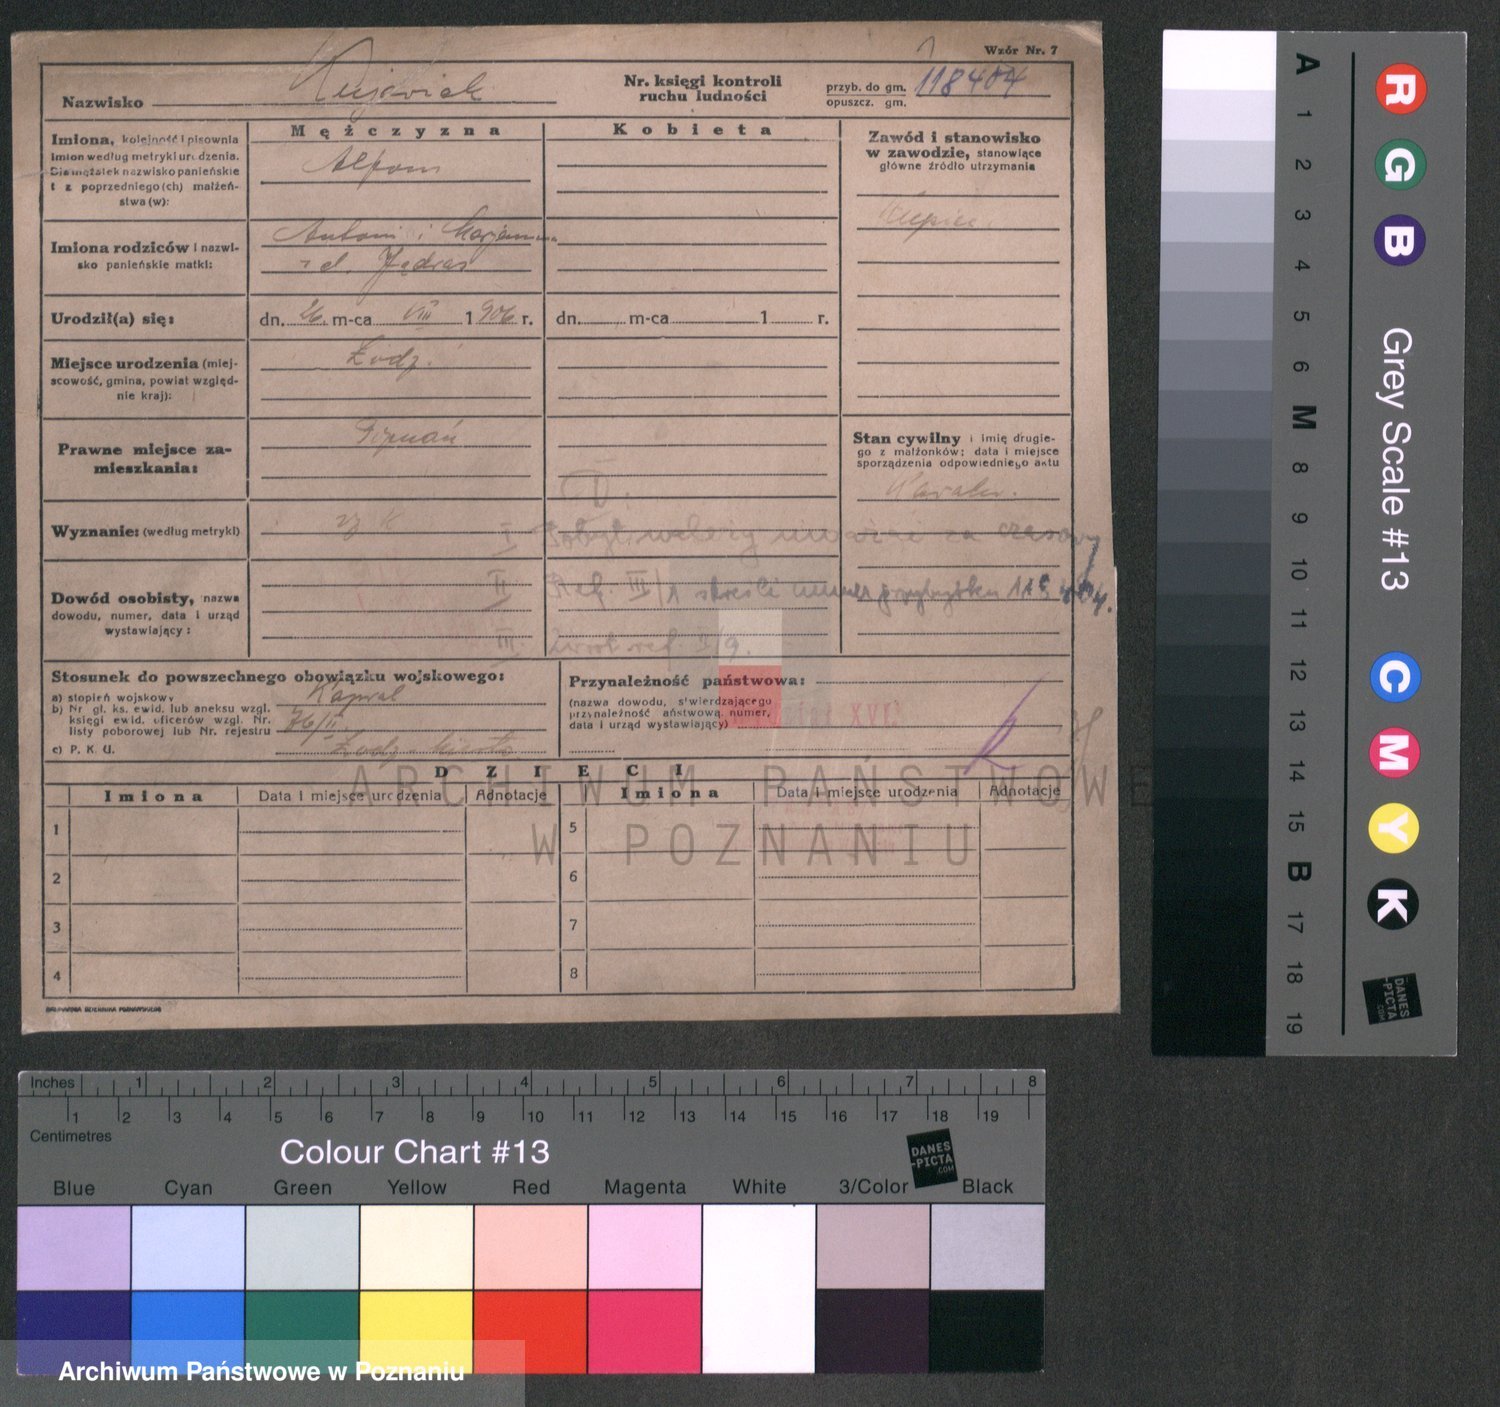 Wzór Nr. 7
Nazwisko Kujawiak
Nr. księgi kontroli
ruchu ludności
przyb. do gm.
opuszcz. gm.
118404
Imiona, kolejność i pisownia
imion według metryki urodzenia.
Dla mężatek nazwisko panieńskie
i z poprzedniego (ch) małżeń-
stwa (w):
Mężczyzna
Alfons
Kobieta
Zawód i stanowisko
w zawodzie, stanowiące
główne źródło utrzymania
Kupiec.
Imiona rodziców i nazwi-
sko panieńskie matki:
Antoni i Marjanna
z d. Jędras
Urodził(a) się:
dn. 26. m-ca VIII 1906 r.
dn. m-ca 1 r.
Miejsce urodzenia (miej-
scowość, gmina, powiat względ-
nie kraj):
Łódź.
Prawne miejsce za-
mieszkania:
Poznań
Stan cywilny i imię drugie-
go z małżonków; data i miejsce
sporządzenia odpowiedniego aktu
Kawaler.
Wyznanie: (według metryki)
I Pobyt należy uważać za czasowy
Dowód osobisty, nazwa
dowodu, numer, data i urząd
wystawiający:
II Ref. III/1 skreśli numer przybytku 118404.
III Zwrot ref. I/9.
Stosunek do powszechnego obowiązku wojskowego:
a) stopień wojskowy
b) Nr gł. ks. ewid. lub aneksu wzgl.
księgi ewid. oficerów wzgl. Nr.
listy poborowej lub Nr. rejestru
c) P. K. U.
Kapral
76/II
Łódź-miasto
Przynależność państwowa:
(nazwa dowodu, stwierdzającego
przynależność państwową, numer,
data i urząd wystawiający)
XVI
DZIECI
Imiona
Data i miejsce urodzenia
Adnotacje
Imiona
Data i miejsce urodzenia
Adnotacje
1
5
2
6
3
7
4
8
ARCHIWUM PAŃSTWOWE
W POZNANIU
Inches 1 2 3 4 5 6 7 8
1 2 3 4 5 6 7 8 9 10 11 12 13 14 15 16 17 18 19
Centimetres
Colour Chart #13
DANES
-PICTA
.COM
Blue Cyan Green Yellow Red Magenta White 3/Color Black
Archiwum Państwowe w Poznaniu
A 1 2 3 4 5 6 M 8 9 10 11 12 13 14 15 B 17 18 19
R G B
Grey Scale #13
C M Y K
DANES
-PICTA
.COM